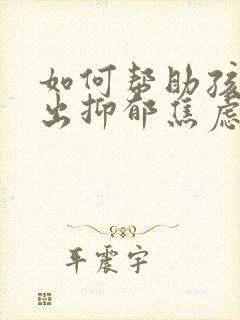 如何帮助孩
出抑郁焦虑
车震宇